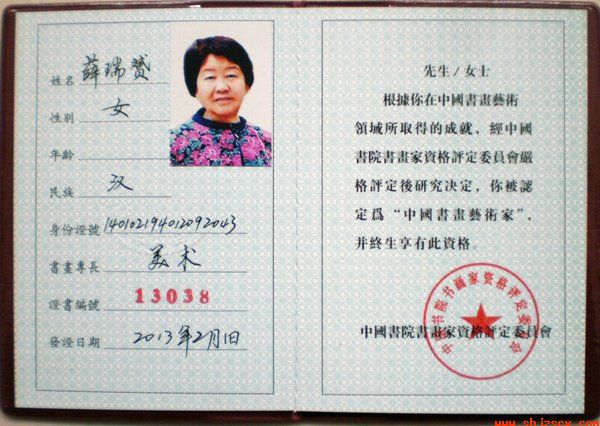 姓名 薛瑞赟
性别 女
年龄
民族 汉
身份證號 140102194012092043
書畫專長 美术
證書編號 13038
發證日期 2013年2月1日
先生/女士
根據你在中國書畫藝術
領域所取得的成就，經中國
書院書畫家資格評定委員會嚴
格評定後研究决定，你被認
定爲“中國書畫藝術家”，
并終生享有此資格。
中國書院書畫家資格評定委員會
中国书院书画家资格评定委员会
www.shjzscx.com